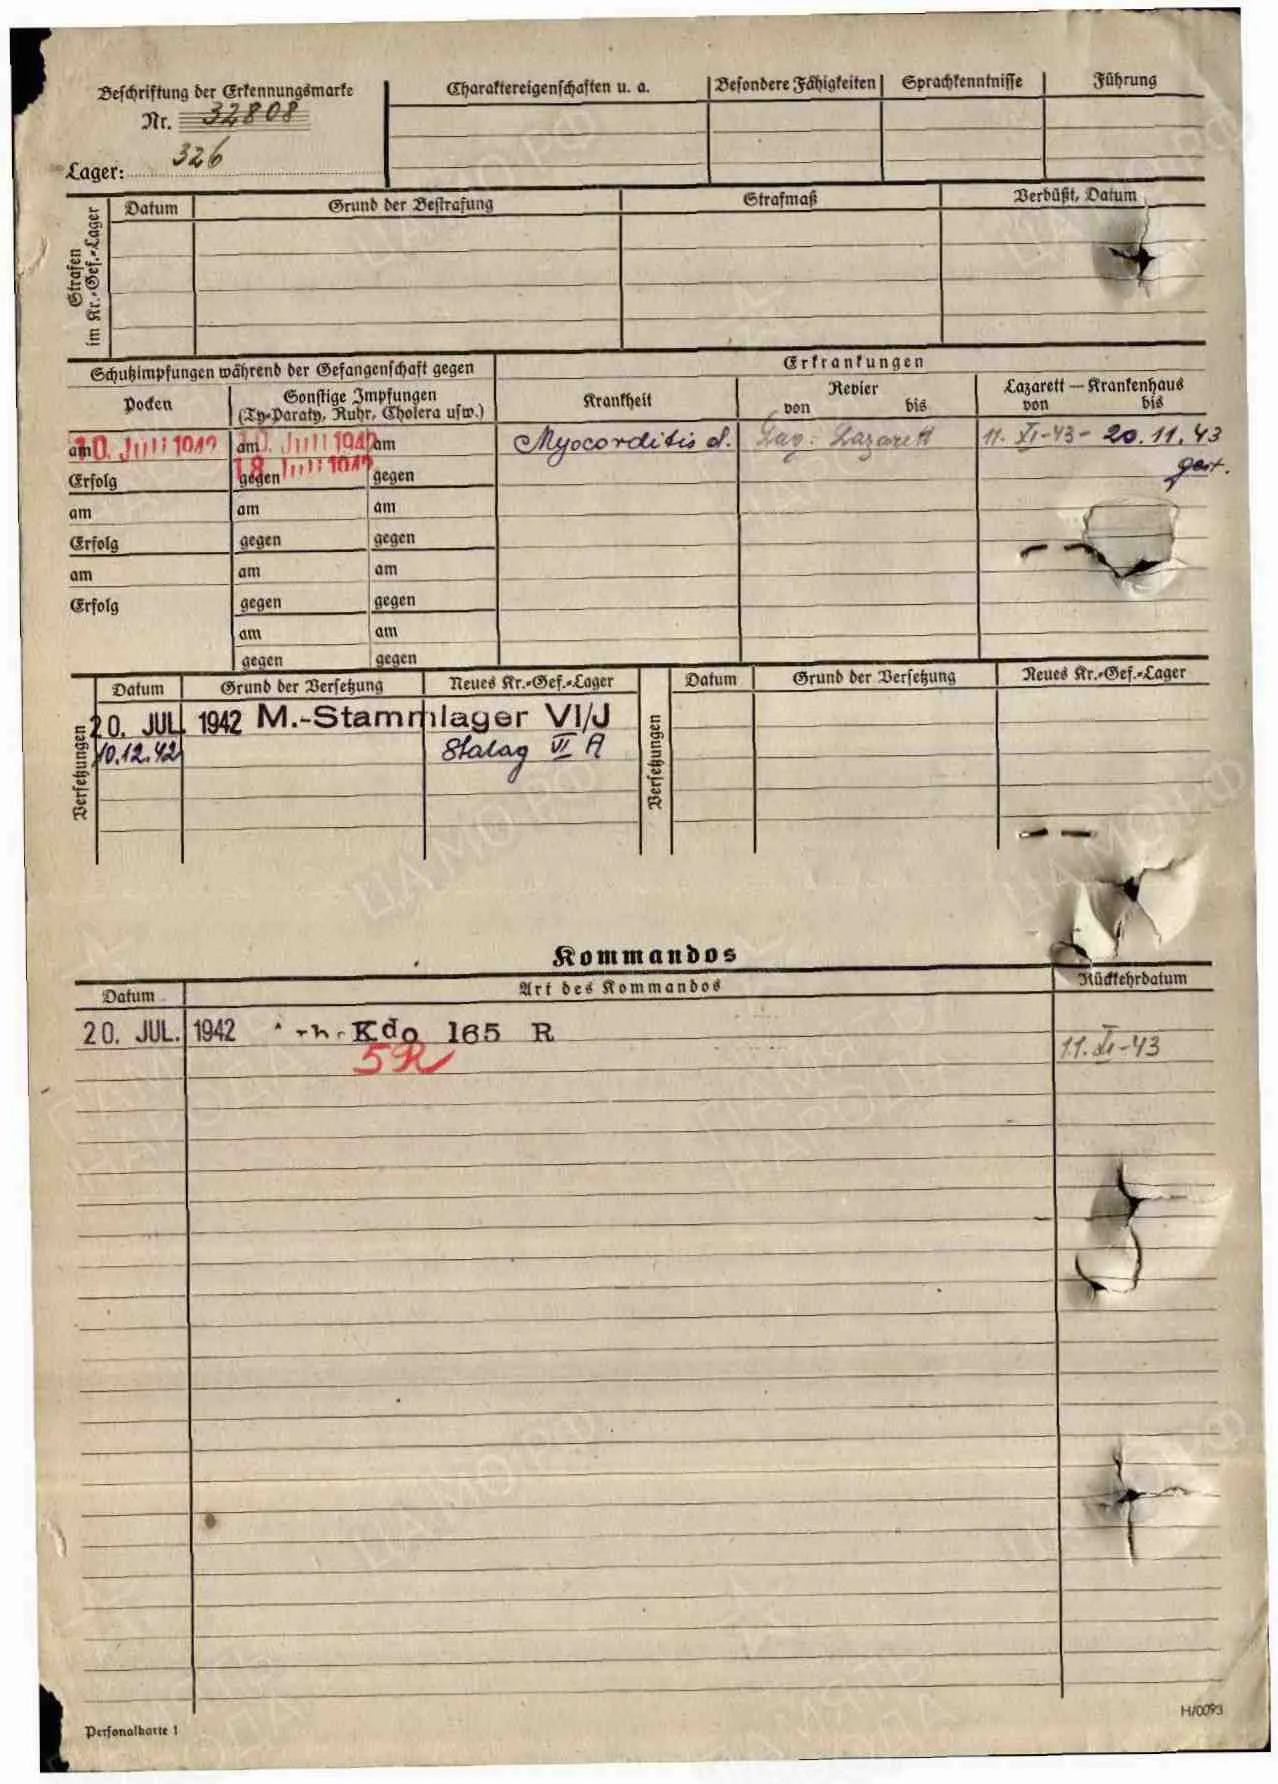 Beschriftung der Erkennungsmarke
Nr. 32808
Lager: 326
Charaktereigenschaften u. a. Besondere Fähigkeiten Sprachkenntnisse Führung
Strafen im Kr.-Gef.-Lager
Datum Grund der Bestrafung Strafmaß Verbüßt, Datum
Schutzimpfungen während der Gefangenschaft gegen
Erkrankungen
Pocken
Sonstige Impfungen
(Ty-Paraty, Ruhr, Cholera usw.)
Krankheit
Revier
von bis
Lazarett — Krankenhaus
von bis
am 10. Juli 1942 am 10. Juli 1942 am Myocorditis d. Lazarett 11. XI-43 - 20.11.43
Erfolg gegen 18 Juli 1942 gegen gest.
am am am
Erfolg gegen gegen
am am am
Erfolg gegen gegen
am am
gegen gegen
Versetzungen
Datum Grund der Versetzung Neues Kr.-Gef.-Lager
20. JUL. 1942 M.-Stammlager VI/J
10.12.42 Stalag VI A
Versetzungen
Datum Grund der Versetzung Neues Kr.-Gef.-Lager
Kommandos
Datum Art des Kommandos Rückkehrdatum
20. JUL. 1942 Kdo 165 R
5R 11. XI-43
Personalkarte 1
H/0093
ЦАМО.РФ